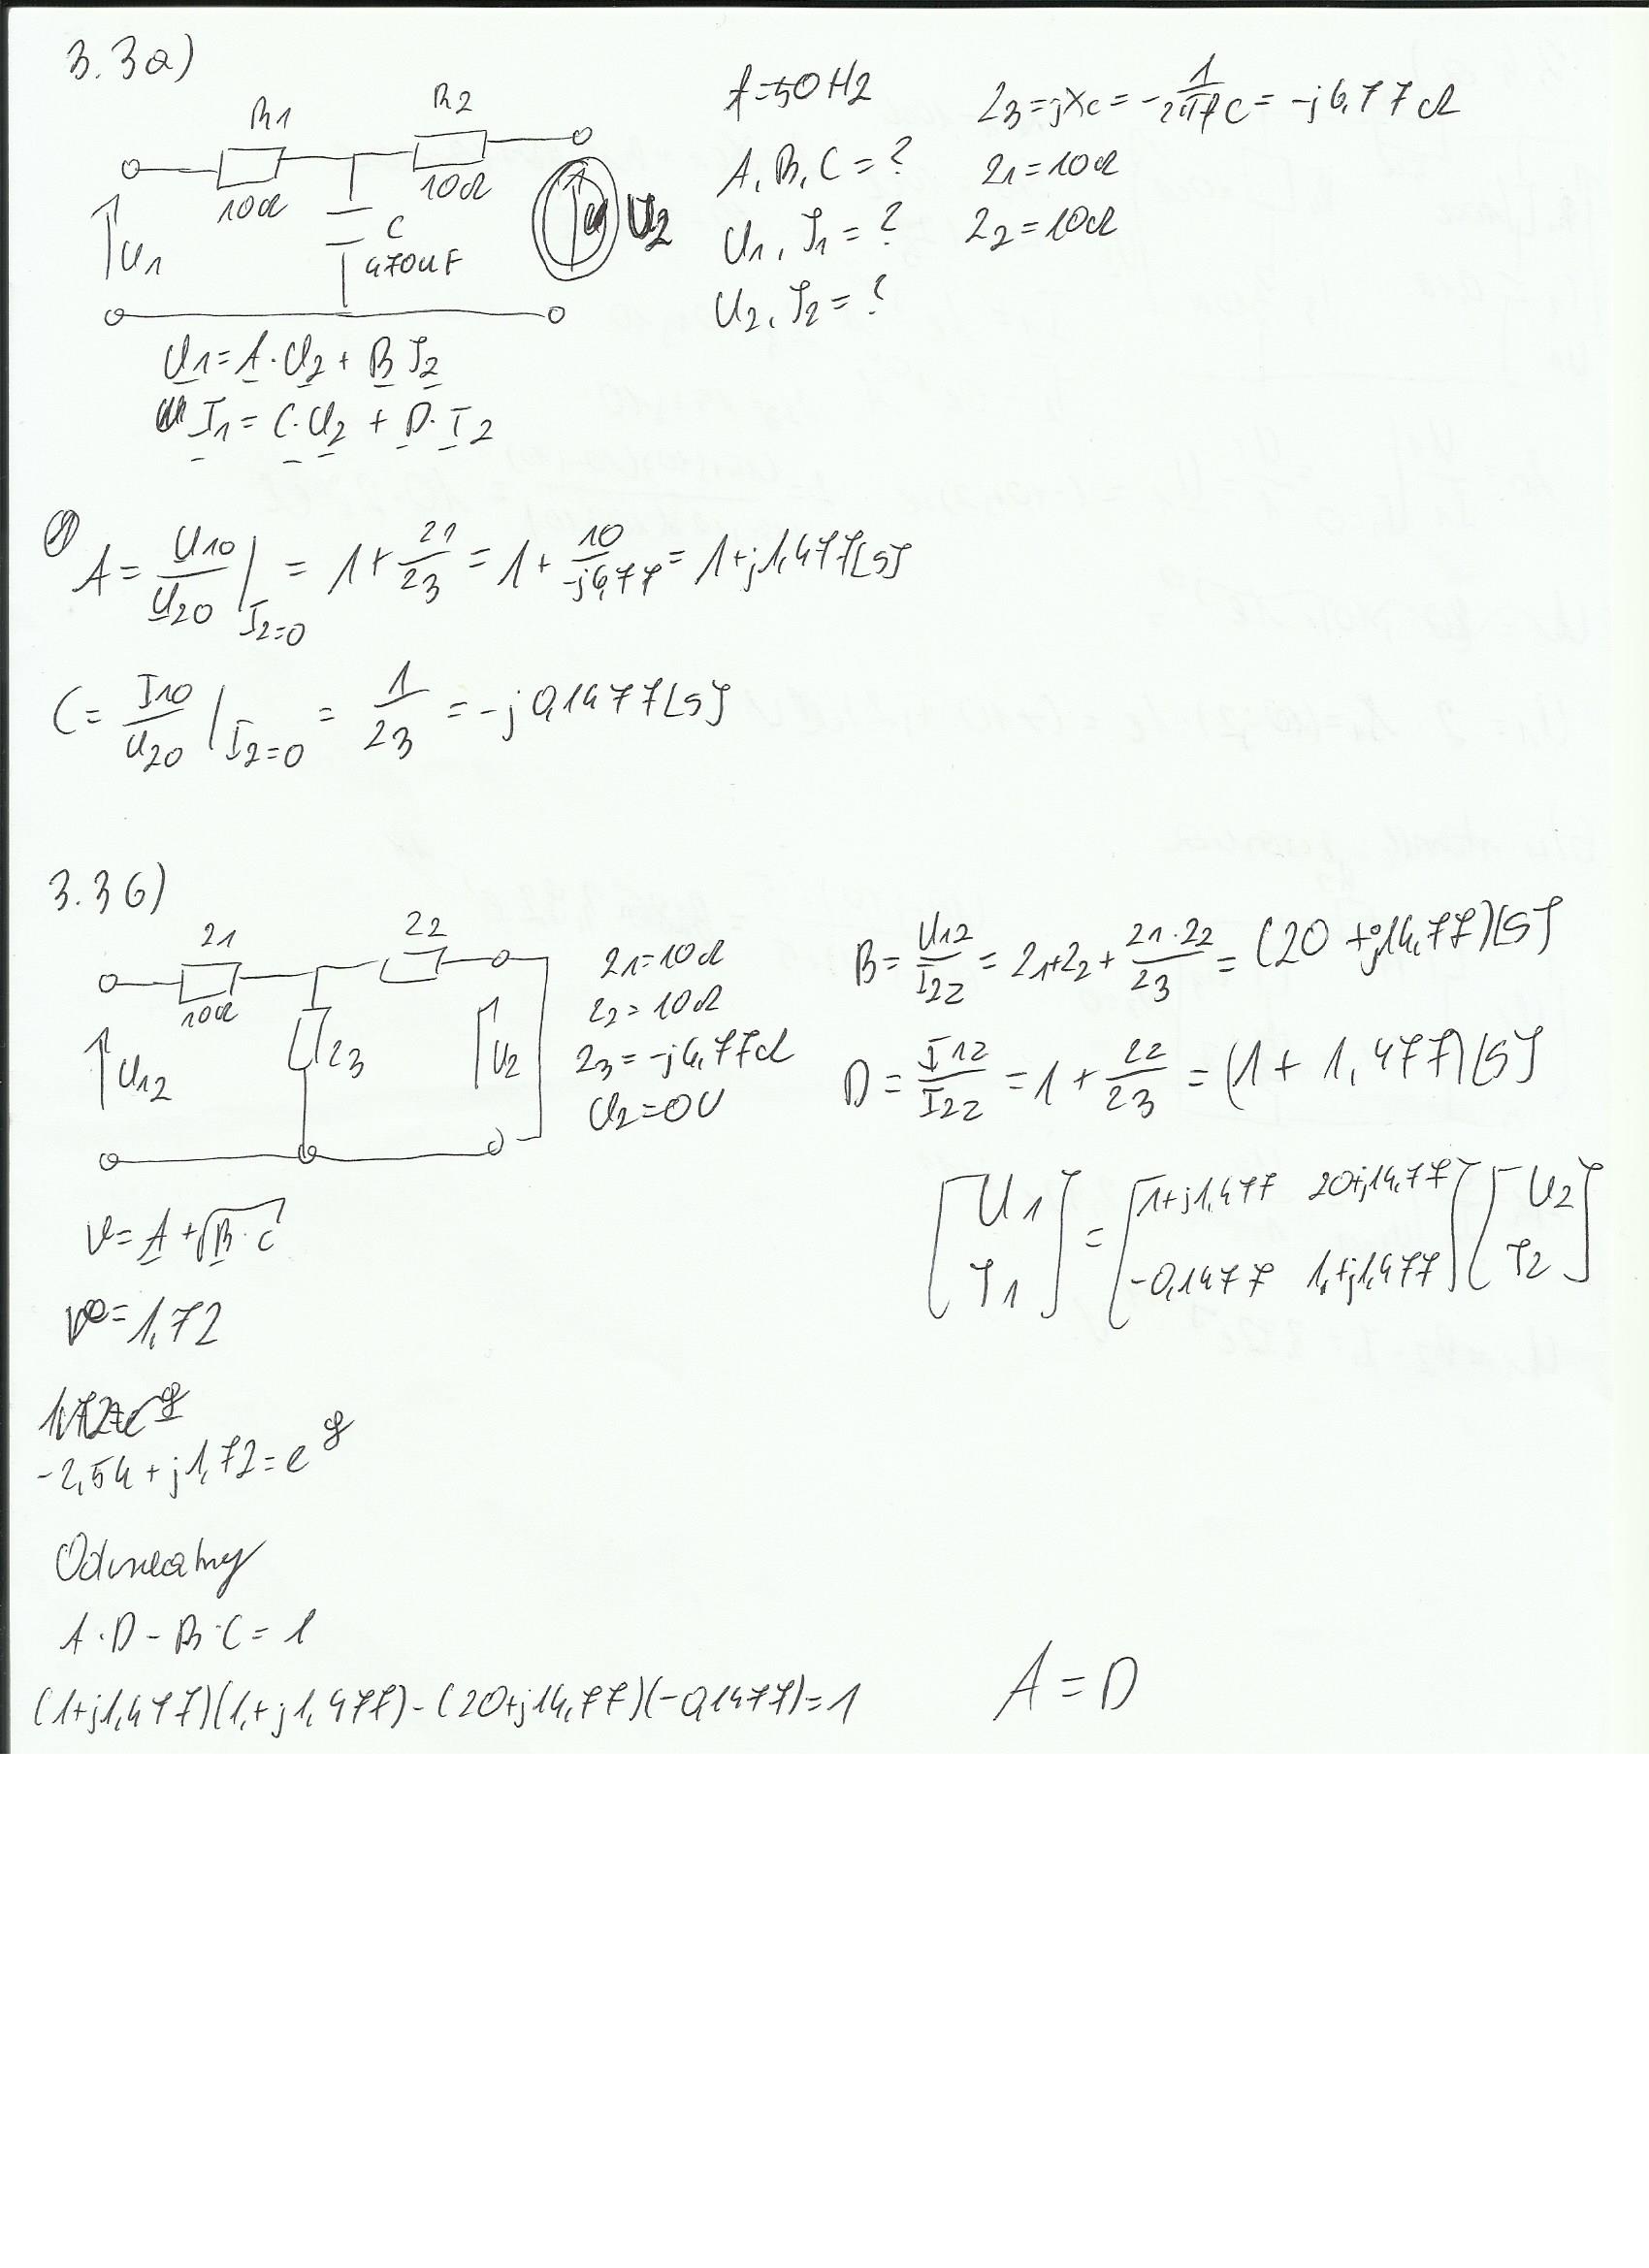 3.3a)
R1
R2
10Ω
10Ω
C
470uF
U1
U2
f=50Hz
A, B, C = ?
U1, I1 = ?
U2, I2 = ?
Z3=jXc = -1/2πfC = -j6,77Ω
Z1=10Ω
Z2=10Ω
U1=A·U2 + B I2
I1= C·U2 + D·I2
A = U10/U20 | I2=0 = 1+ Z1/Z3 = 1 + 10/-j6,77 = 1+j1,477[S]
C = I10/U20 | I2=0 = 1/Z3 = -j0,1477[S]
3.3b)
Z1
Z2
10Ω
Z3
U1z
U2
Z1=10Ω
Z2=10Ω
Z3=-j6,77Ω
U2=0V
B = U1z/I2z = Z1+Z2+ Z1·Z2/Z3 = (20+j14,77)[S]
D = I1z/I2z = 1+ Z2/Z3 = (1+1,477)[S]
[U1 I1] = [1+j1,477 20+j14,77 -0,1477 1,+j1,477] [U2 I2]
v= A+√B·C
v=1,72
-2,54+j1,72=e^g
Odwracalny
A·D-B·C=1
(1+j1,477)(1,+j1,477)-(20+j14,77)(-0,1477)=1
A=D